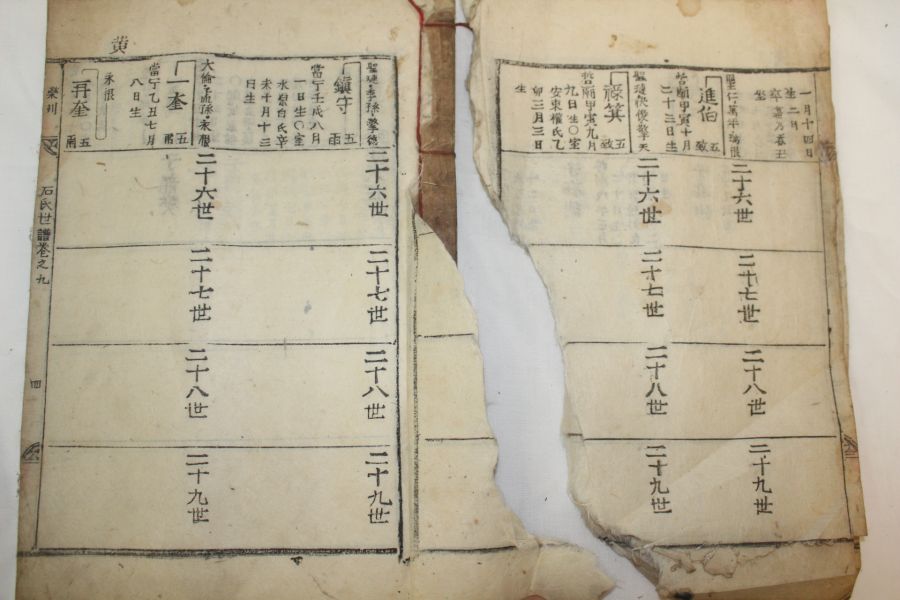 一月十四日
生二月
坐
進伯
五
致
哲廟甲寅十月
二十三日生
祿箕
五
致
哲廟甲寅九月
九日生○室
安東權氏乙
卯三月三日
生
二十六世
二十六世
二十七世
二十七世
二十八世
二十八世
二十九世
二十九世
黃
鎭守
五
一日生○室
水原白氏辛
未十月十三
日生
一奎
五
當宁乙丑七月
八日生
永根
再奎
五
二十六世
二十六世
二十七世
二十七世
二十八世
二十八世
二十九世
二十九世
石氏世譜卷之九
四